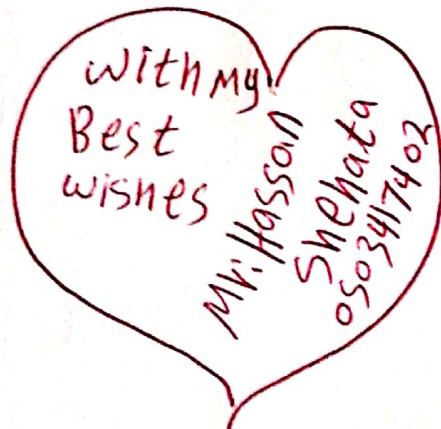 with my
Best
wishes
Mr. Hassan
Shehata
0503417402